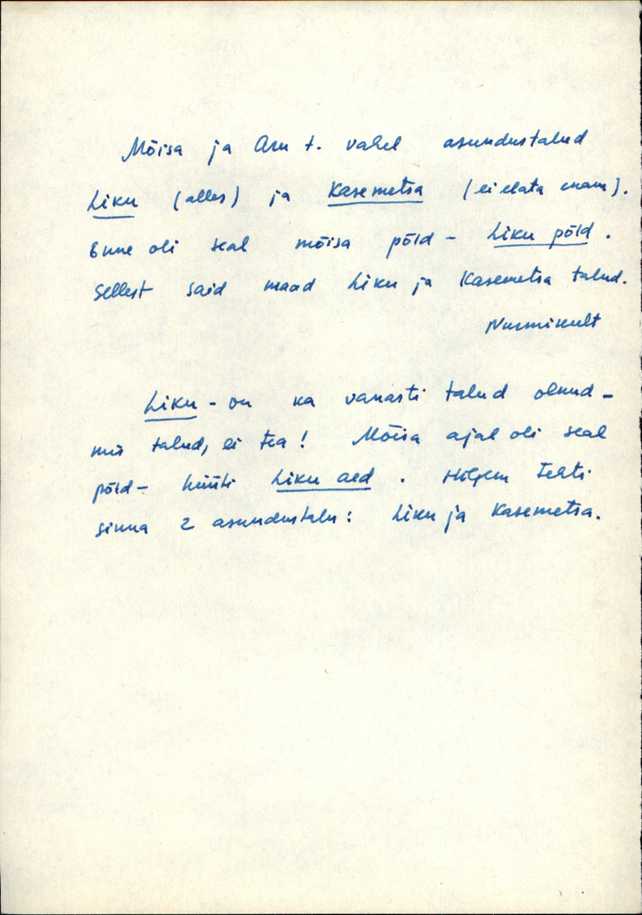 Mõisa ja Aru t. vahel asundustalud
Liku (alles) ja Kasemetsa (ei elata enam).
Enne oli seal mõisa põld - Liku põld.
Sellest said maad Liku ja Kasemetsa talud.
Nurmikult
Liku - on ka vanasti talud olnud -
mis talud, ei tea! Mõisa ajal oli seal
põld - hüüti Liku aed. Hiljem tehti
sinna 2 asundustalu: Liku ja Kasemetsa.